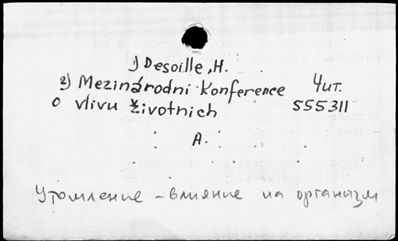 1) Desoille, H.
2) Mezinárodni Konference Чит.
o vlivu životnich 555311
A.
Утомление – влияние на организм